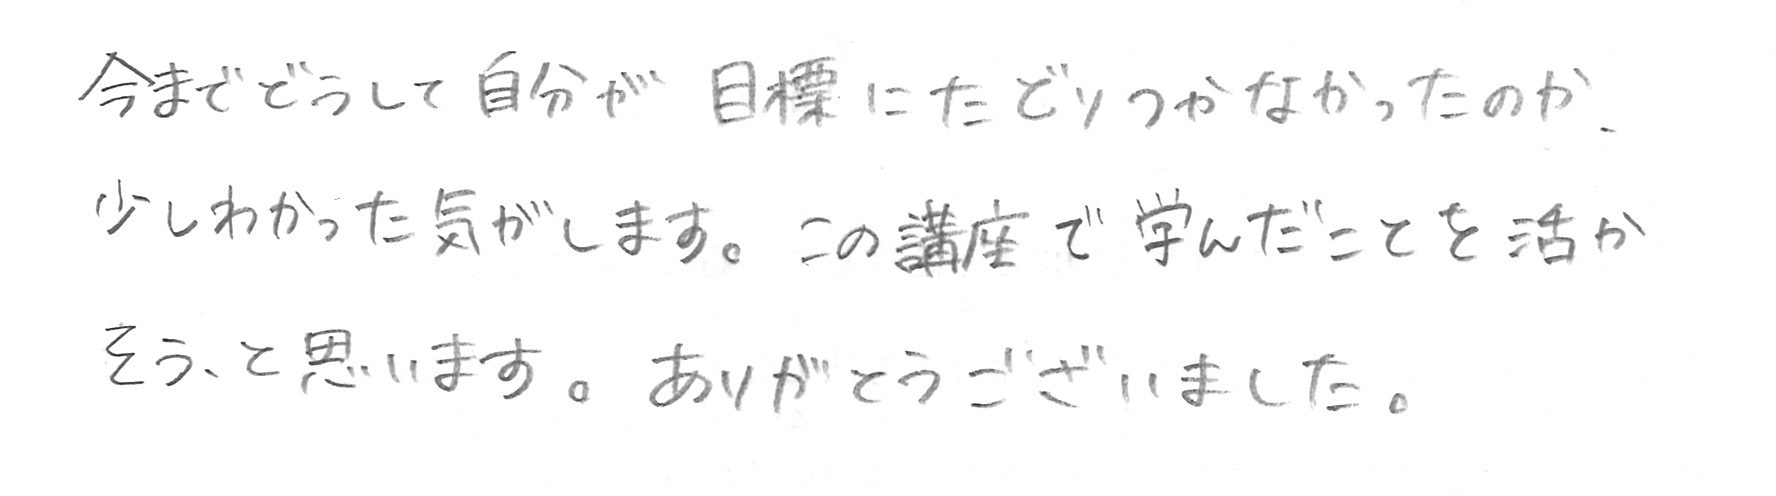 今までどうして自分が目標にたどりつかなかったのか、
少しわかった気がします。この講座で学んだことを活か
そう、と思います。ありがとうございました。